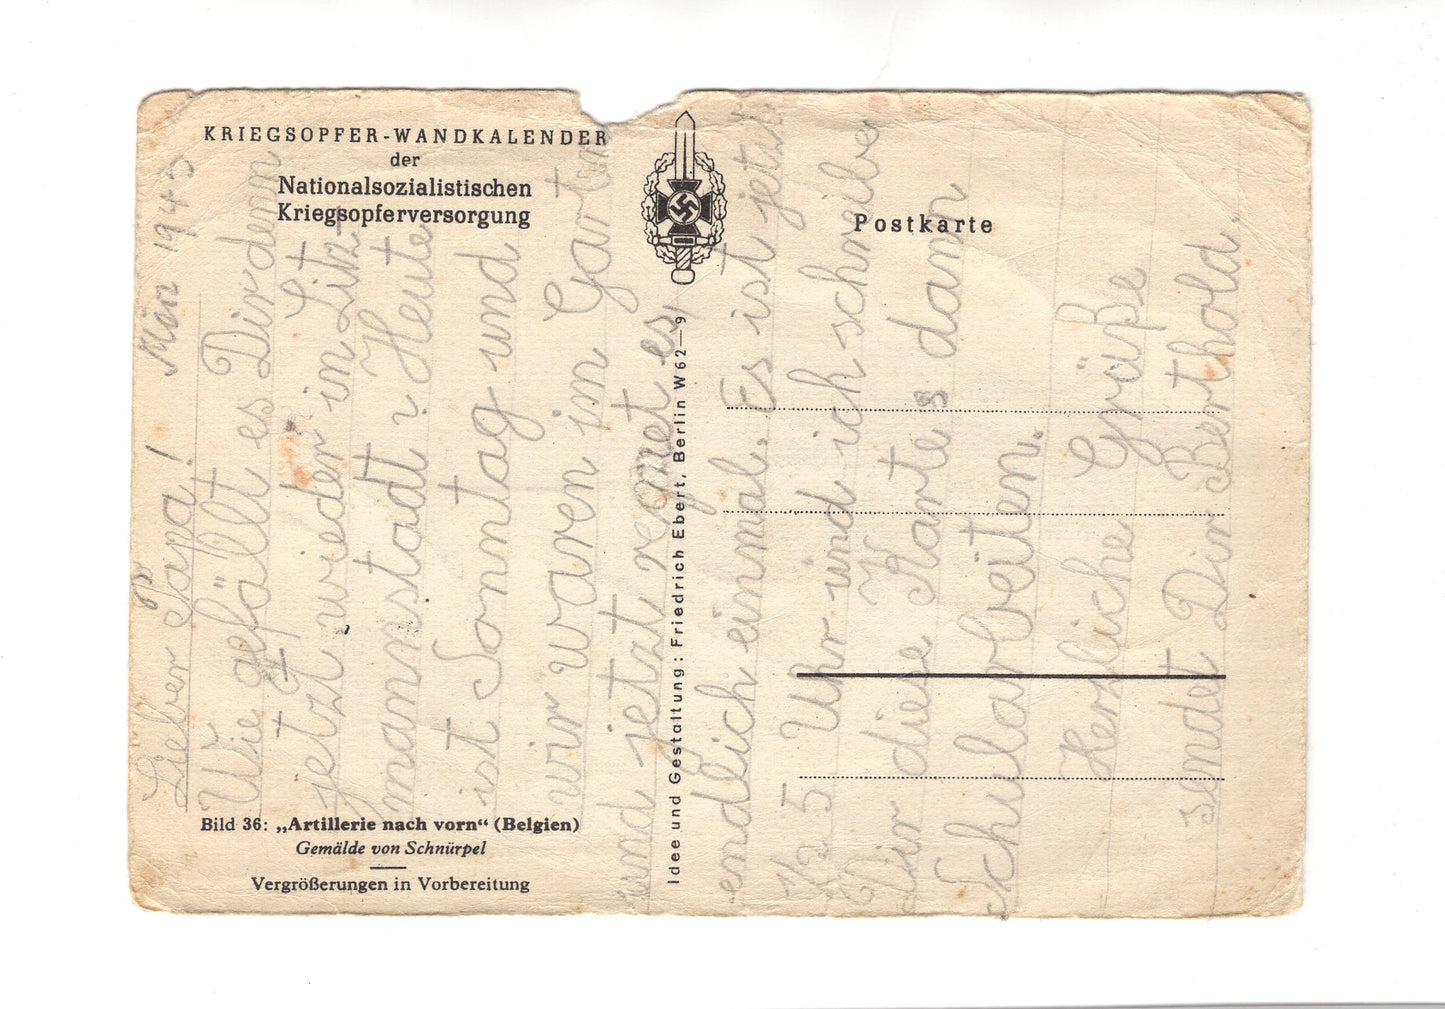 KRIEGSOPFER-WANDKALENDER
der
Nationalsozialistischen
Kriegsopferversorgung
Postkarte
Idee und Gestaltung: Friedrich Ebert, Berlin W 62—9
Bild 36: „Artillerie nach vorn“ (Belgien)
Gemälde von Schnürpel
Vergrößerungen in Vorbereitung
Lieber Papa! 1943
Wie gefällt es Dir denn
jetzt wieder in Litz-
mannstadt? Heute
ist Sonntag und
wir waren im Garten
und jetzt regnet es
endlich einmal. Es ist jetzt
1/2 5 Uhr und ich schreibe
Dir diese Karte dann
Schularbeiten.
Herzliche Grüße
sendet Dir Berthold.